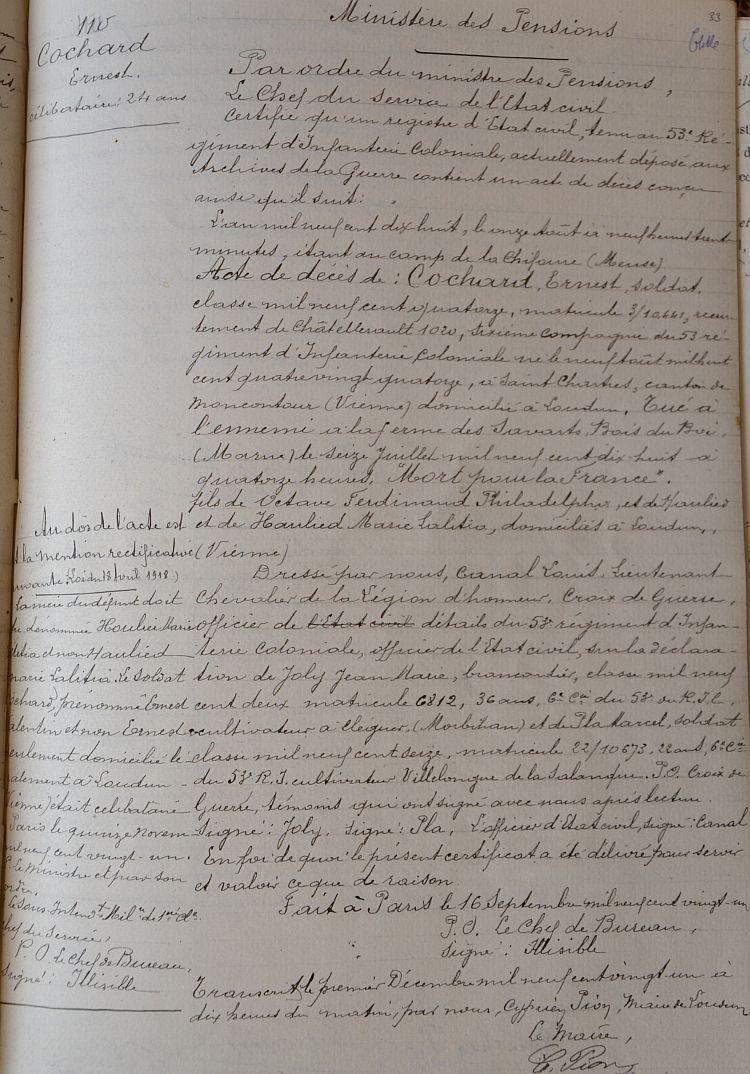 33
110
Cochard
Ernest.
célibataire: 24 ans
Ministère des Pensions
Par ordre du ministre des Pensions,
Le Chef du service de l'Etat civil
certifie qu'un registre d'Etat civil, tenu au 53e Ré-
giment d'Infanterie Coloniale, actuellement déposé aux
Archives de la Guerre contient un acte de décès conçu
ainsi qu'il suit:
L'an mil neuf cent dix huit, le onze Août à neuf heures trente
minutes, étant au camp de la Chifour (Meuse)
Acte de décès de: Cochard, Ernest, soldat,
classe mil neuf cent quatorze, matricule 3/10441, recru-
tement de Châtellerault 1020, sixième compagnie du 53 ré-
giment d'Infanterie Coloniale né le neuf Août mil huit
cent quatre vingt quatorze, à Saint Chartres, canton de
Moncontour (Vienne) domicilié à Loudun, Tué à
l'ennemi à la ferme des Savarts, Bois du Roi,
(Marne) le seize Juillet mil neuf cent dix huit à
quatorze heures, "Mort pour la France".
fils de Octave Ferdinand Philadelphe, et de Haulied
et de Haulied Marie Lalitia, domiciliés à Loudun,
(Vienne)
Dressé par nous, Canal Louis, Lieutenant
Chevalier de la Légion d'honneur, Croix de Guerre,
officier de l'Etat civil détails du 53e régiment d'Infan-
terie Coloniale, officier de l'Etat civil, sur la déclara-
tion de Joly Jean Marie, brancardier, classe mil neuf
cent deux matricule 6812, 36 ans, 6e Cie du 53e du R.I.C.,
cultivateur à Cléguer, (Morbihan) et de Pla Marcel, soldat
classe mil neuf cent seize, matricule 22/10673, 22 ans, 6e Cie
du 53e R.I. cultivateur Villelongue de la Salanque. P.O. Croix de
Guerre, témoins qui ont signé avec nous après lecture.
Signé: Joly. Signé: Pla, L'officier d'Etat civil, signé: Canal
En foi de quoi le présent certificat a été délivré pour servir
et valoir ce que de raison.
Fait à Paris le 16 Septembre mil neuf cent vingt-un
P.O. Le Chef de Bureau,
Signé: Illisible
Transcrit le premier Décembre mil neuf cent vingt un à
dix heures du matin, par nous, Cyprien Pion, Maire de Loudun
Le Maire,
C. Pion
Au dos de l'acte est
la mention rectificative
suivante Loi du 18 Avril 1918.)
La mère du défunt doit
être dénommée Houlier Marie
Lalitia et non Haulied
Marie Lalitia. Le soldat
Cochard, prénommé Ernest
Valentin et non Ernest
seulement domicilié lé-
galement à Loudun
(Vienne) était célibataire
Paris le quinze Novem-
mil neuf cent vingt-un.
P. Le Ministre et par son
ordre,
Le Sous-Intendt Milre de 1ère Cle
chef du Service,
P.O. le chef de Bureau,
Signé: Illisible